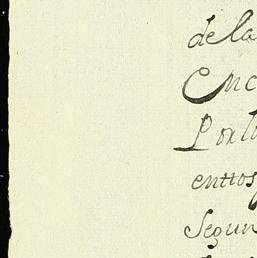 de la
Enc
Portu
enttos
Segun